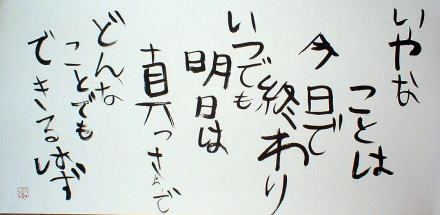 いやな
ことは
今日で
終わり
いつでも
明日は
真っさらで
どんな
ことでも
できるはず